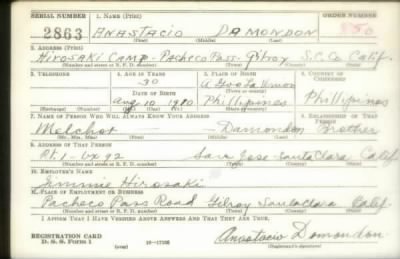 SERIAL NUMBER 1. NAME (Print) ORDER NUMBER
2863 ANASTACIO DAMONDON 850
(First) (Middle) (Last)
2. ADDRESS (Print)
HIROSAKI CAMP - PACHECO PASS - Gilroy S.C. Co Calif.
(Number and street or R. F. D. number) (Town) (County) (State)
3. TELEPHONE 4. AGE IN YEARS 5. PLACE OF BIRTH 6. COUNTRY OF CITIZENSHIP
30 Union
DATE OF BIRTH
Aug 10 1910 Phillipines Phillipines
(Mo.) (Day) (Yr.) (State or country)
7. NAME OF PERSON WHO WILL ALWAYS KNOW YOUR ADDRESS 8. RELATIONSHIP OF THAT PERSON
Melchor — Damondon Brother
(Mr., Mrs., Miss) (First) (Middle) (Last)
9. ADDRESS OF THAT PERSON
Rt. 1 - Bx 92 San Jose Santa Clara Calif
(Number and street or R. F. D. number) (Town) (County) (State)
10. EMPLOYER'S NAME
Jimmie Hirosaki
11. PLACE OF EMPLOYMENT OR BUSINESS
Pacheco Pass Road Gilroy Santa Clara Calif.
(Number and street or R. F. D. number) (Town) (County) (State)
I AFFIRM THAT I HAVE VERIFIED ABOVE ANSWERS AND THAT THEY ARE TRUE.
REGISTRATION CARD
D. S. S. Form 1 (over) 16-17105 Anastacio Damondon
(Registrant's signature)